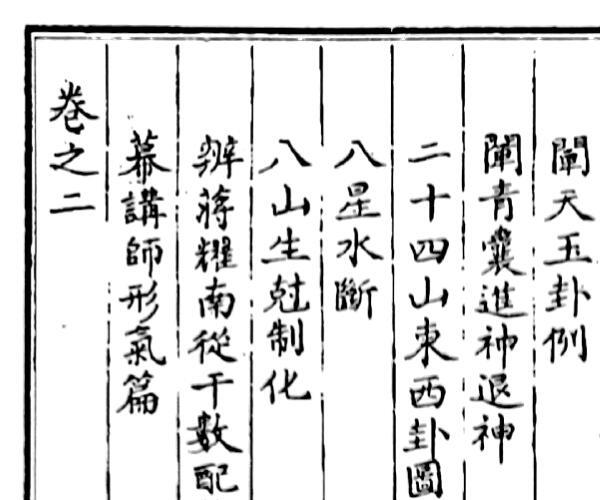 闡天玉卦例
闡青囊進神退神
二十四山東西卦圖
八星水斷
八山生尅制化
辨蔣耀南從干數配
幕講師形氣篇
卷之二